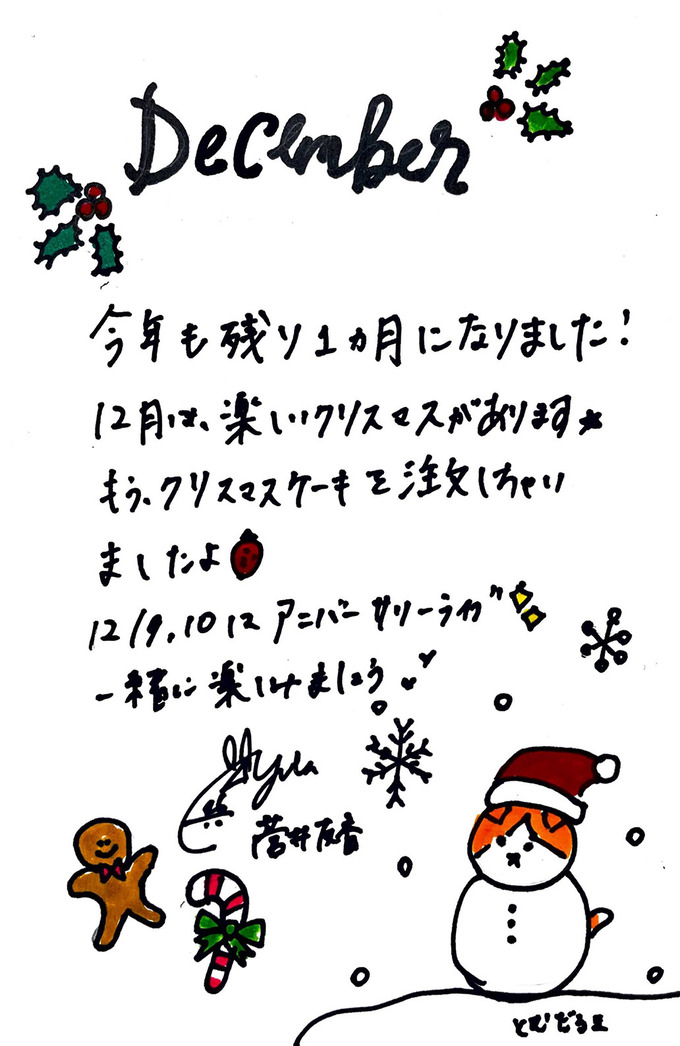 December
今年も残り1ヵ月になりました!
12月は、楽しいクリスマスがあります☆
もう、クリスマスケーキを注文しちゃい
ましたよ
12/9,10にアニバーサリーライブ
一緒に楽しみましょう
Yuka
菅井友香
とむどうま